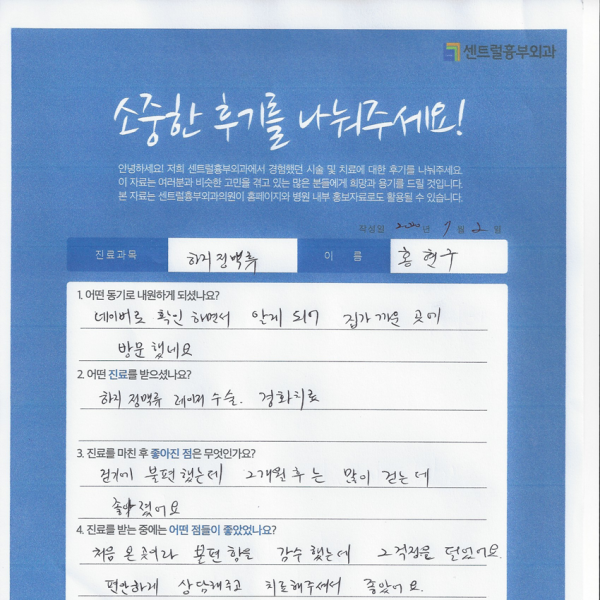 센트럴흉부외과
소중한 후기를 나눠주세요!
안녕하세요! 저희 센트럴흉부외과에서 경험했던 시술 및 치료에 대한 후기를 나눠주세요.
이 자료는 여러분과 비슷한 고민을 겪고 있는 많은 분들에게 희망과 용기를 드릴 것입니다.
본 자료는 센트럴흉부외과의원이 홈페이지와 병원 내부 홍보자료로도 활용될 수 있습니다.
작성일 2020년 9월 2일
진료과목 하지정맥류 이 름 홍현구
1. 어떤 동기로 내원하게 되셨나요?
네이버로 확인하면서 알게 되어 집가까운 곳에
방문했네요
2. 어떤 진료를 받으셨나요?
하지 정맥류 레이저 수술. 경화치료
3. 진료를 마친 후 좋아진 점은 무엇인가요?
걷기에 불편했는데 2개월 후는 많이 걷는데
좋아졌어요
4. 진료를 받는 중에는 어떤 점들이 좋았었나요?
처음 온 곳이라 불편함을 감수했는데 그걱정을 덜었어요.
편안하게 상담해주고 치료해주셔서 좋았어요.